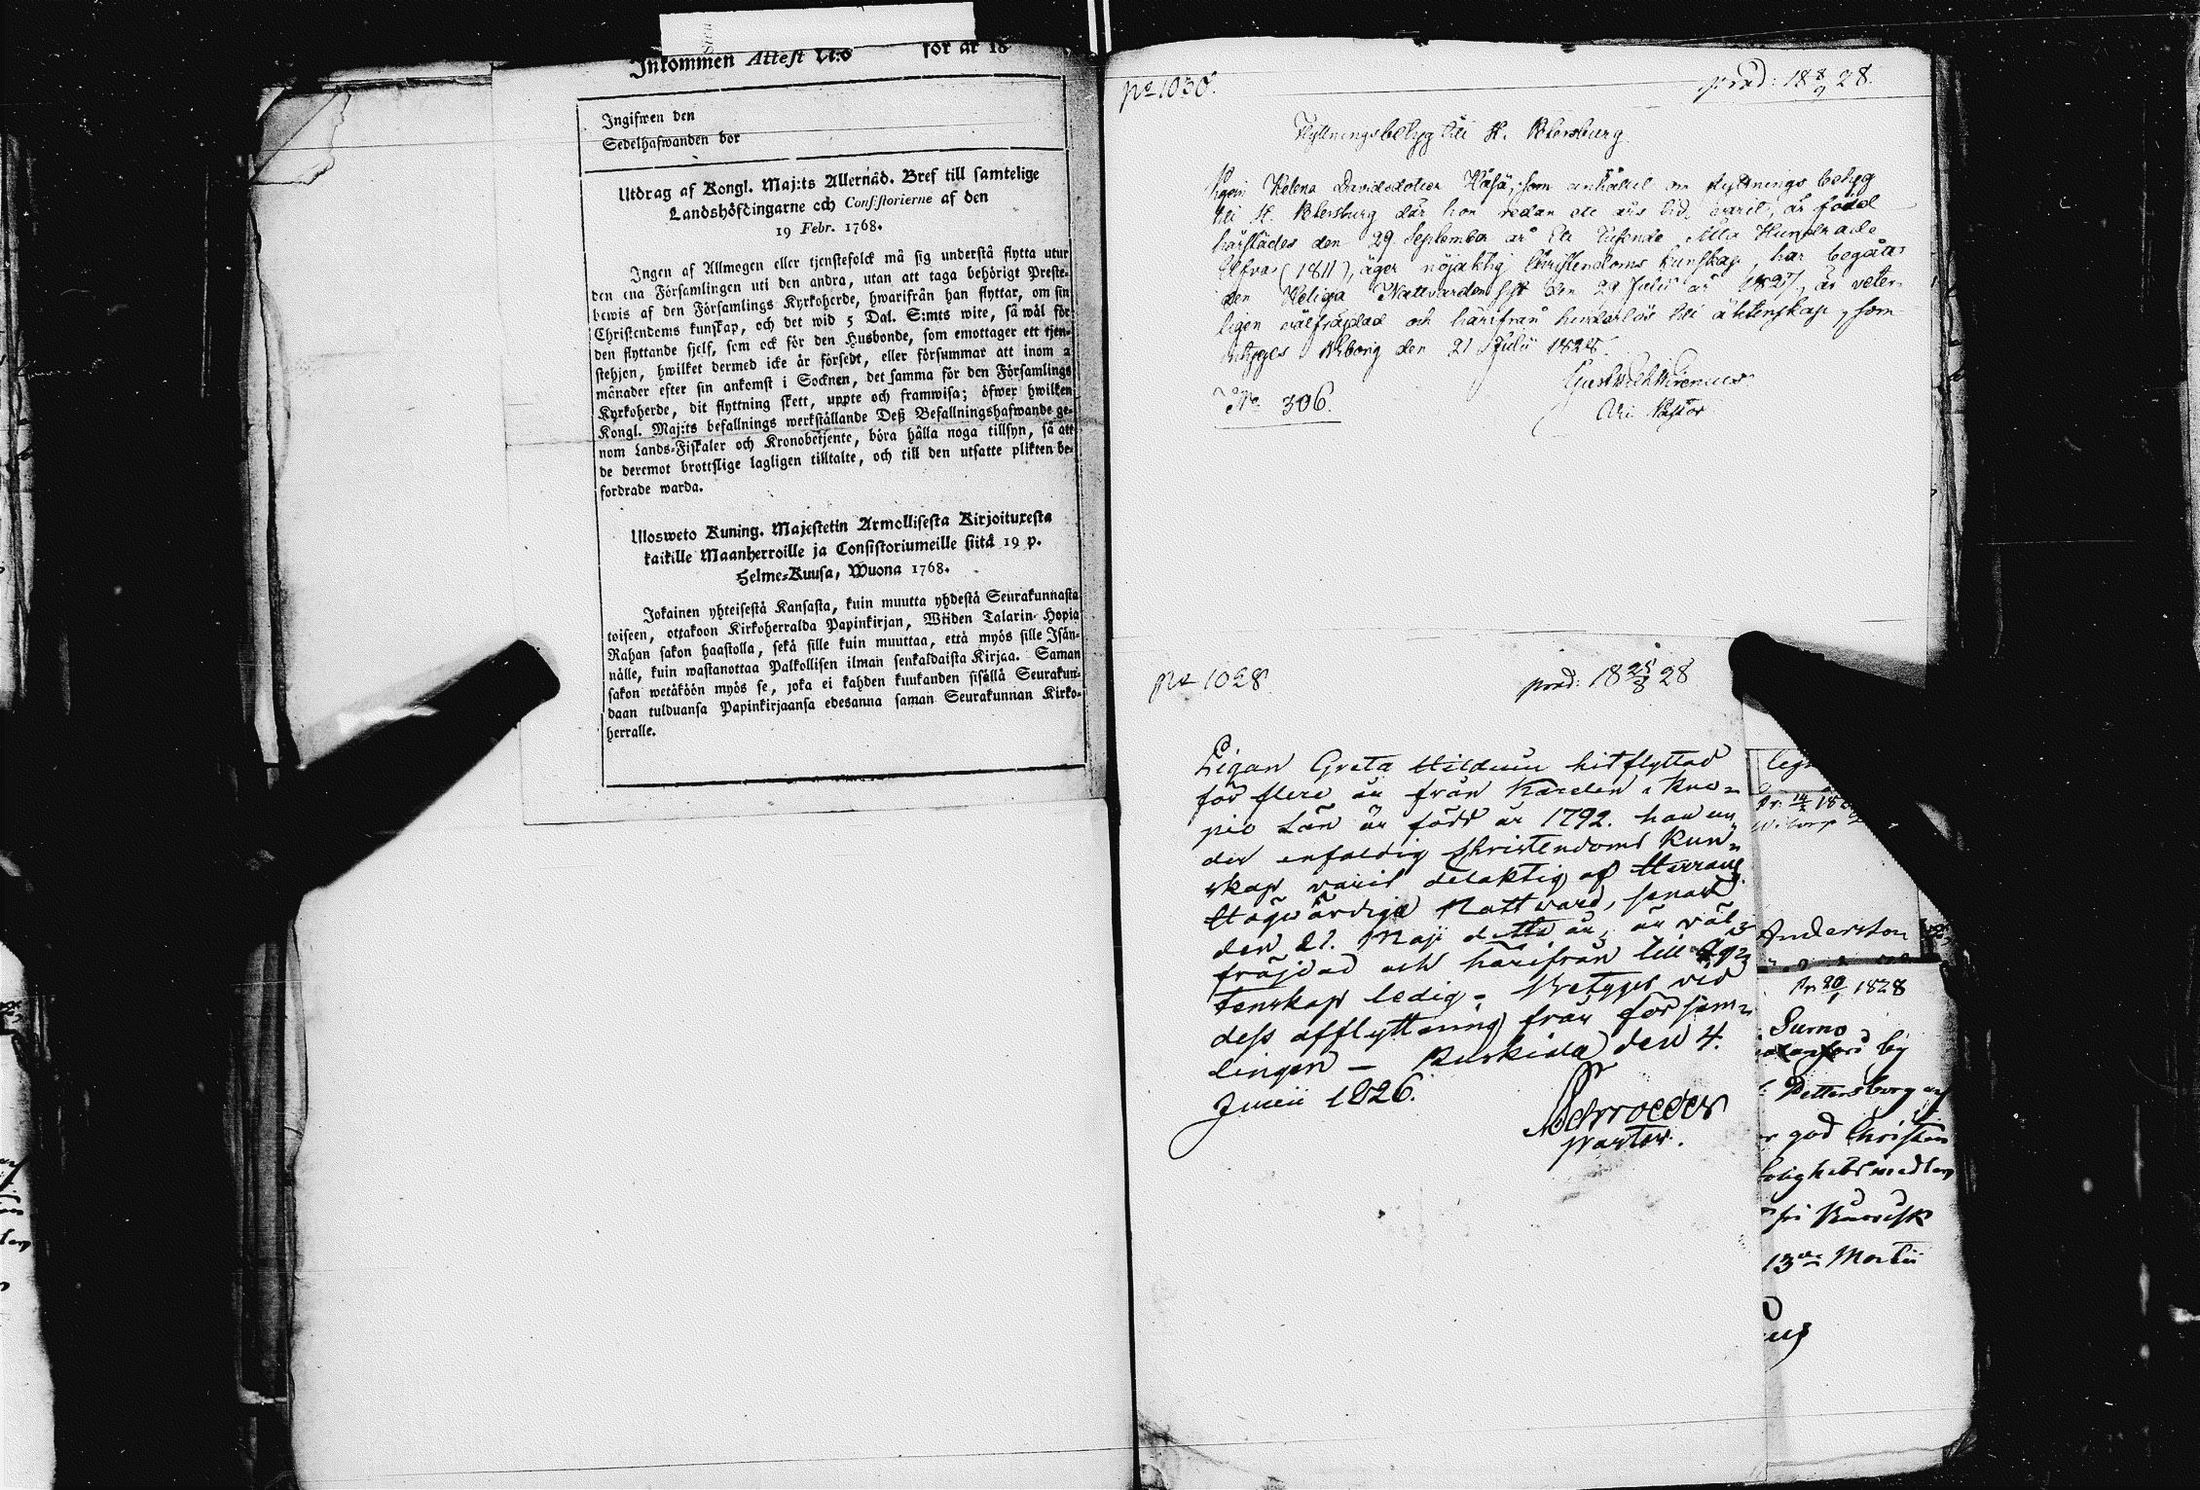 Inkommen Attest N:o för år 18
Ingifwen den
Sedelhafwanden bor
Utdrag af Kongl. Maj:ts Allernåd. Bref till samtelige
Landshöfdingarne och Consistorierne af den
19 Febr. 1768.
Ingen af Allmogen eller tjenstefolck må sig understå flytta utur
den ena Församlingen uti den andra, utan att taga behörigt Preste-
bewis af den Församlings Kyrkoherde, hwarifrån han flyttar, om sin
Christendoms kunskap, och det wid 5 Dal. S:mts wite, så wäl för
den flyttande sjelf, som ock för den Husbonde, som emottager ett tjen-
stehjon, hwilket dermed icke är försedt, eller försummar att inom 2
månader efter sin ankomst i Socknen, det samma för den Församlings
Kyrkoherde, dit flyttning skett, uppte och framwisa; öfwer hwilken
Kongl. Maj:ts befallnings werkställande Deß Befallningshafwande ge-
nom Lands-Fiskaler och Kronobetjente, böra hålla noga tillsyn, så att
de deremot brottslige lagligen tilltalte, och till den utsatte plikten be-
fordrade warda.
Ulosweto Kuning. Majestetin Armollisesta Kirjoituxesta
kaikille Maanherroille ja Consistoriumeille siitä 19 p.
Helme-Kuusa, Wuona 1768.
Jokainen yhteisestä Kansasta, kuin muutta yhdestä Seurakunnasta
toiseen, ottakoon Kirkoherralda Papinkirjan, Wiiden Talarin Hopia
Rahan sakon haastolla, sekä sille kuin muuttaa, että myös sille Isän-
nälle, kuin wastanottaa Palkollisen ilman senkaldaista Kirjaa. Saman
sakon wetäköön myös se, joka ei kahden kuukanden sisällä Seurakun-
daan tulduansa Papinkirjaansa edesanna saman Seurakunnan Kirko-
herralle.
No 1030. prod: 18 8/9 28.
Flyttningsbetyg till St. Petersburg
Pigan Helena Davidsdotter som anhållit om flyttnings betyg
till St. Petersburg där hon redan ett års tid varit, är född
härstädes den 29 September år Ett Tusende Åtta Hundrade
Elfva (1811), äger nöjaktig Christendoms kunskap, har begått
den Heliga Nattvarden sist den 29 Julii år 1827, är veter-
ligen välfräjdad och härifrån hinderlös till äktenskap, som
betygas Wiborg den 21 Julii 1828.
Vice Pastor
No 306.
No 1028. prod: 18 25/8 28
Pigan Greta hitflyttad
för flere år från i Kuo-
pio Län är född år 1792. har un-
der enfaldig Christendoms Kun-
skap varit delaktig af Herrans
Högvärdiga Nattward, senast
den 21. Maji detta år, är väl-
fräjdad och härifrån till äg-
tenskap ledig - Betygas vid
dess afflyttning från försam-
lingen - Ruskiala den 4.
Junii 1826.
Schroeder
Pastor.
Andersson
Pr. 20/1 1828
Sumo
by
Pettersborg
god Christen
13de Martii